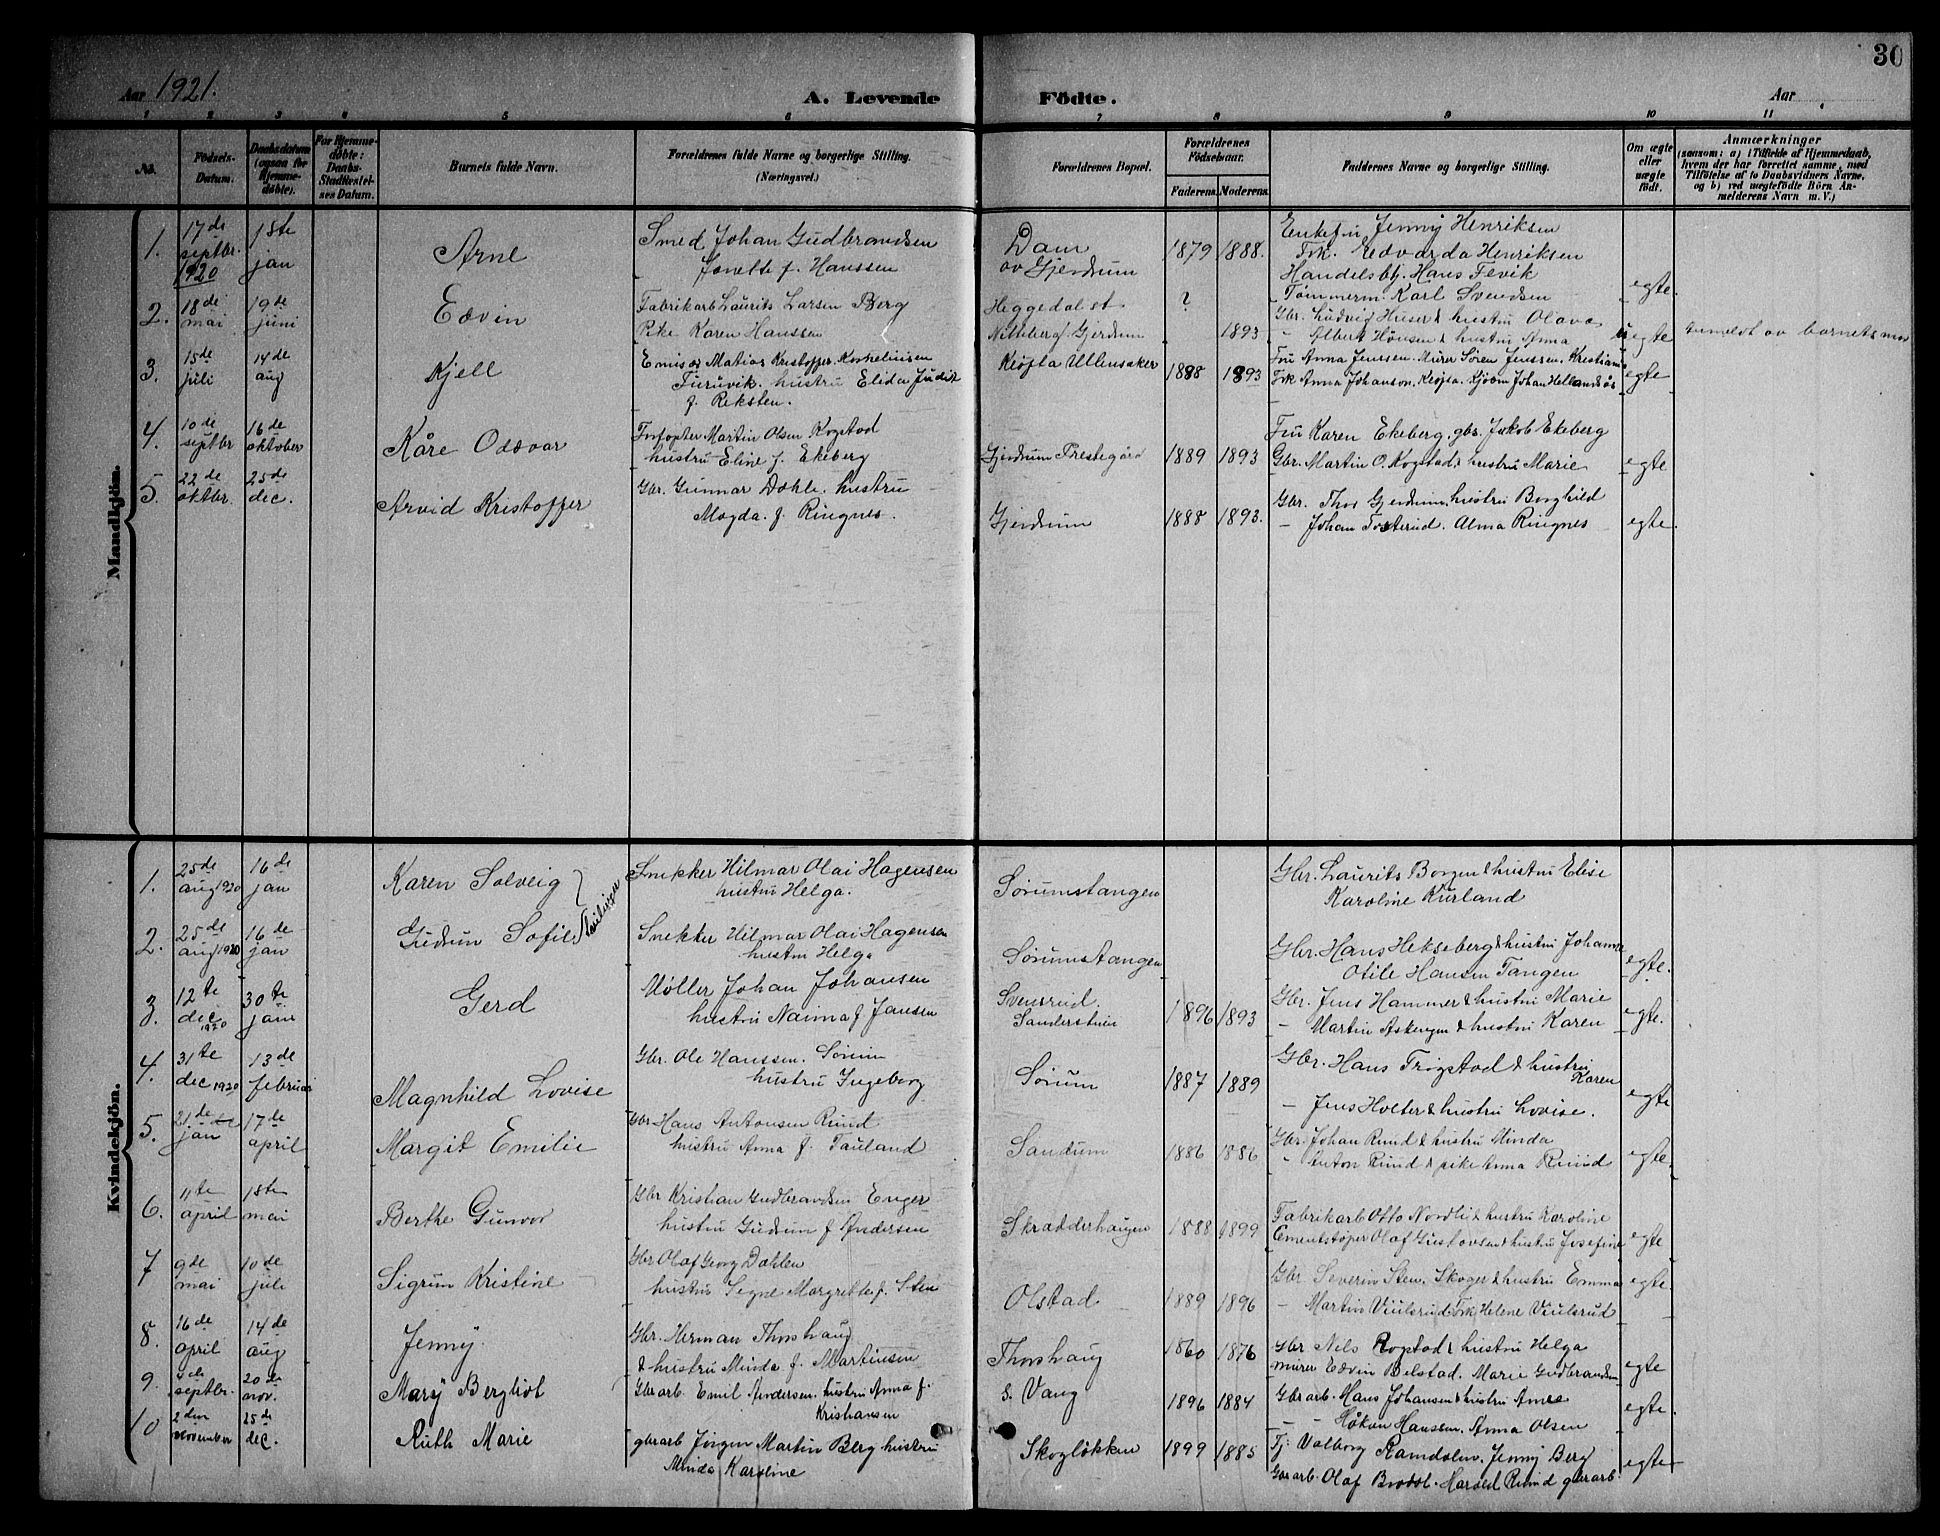 30
Aar 1921.
A. Levende Födte.
Aar
1 2 3 4 5 6 7 8 9 10 11
No.
Fødsels-
Datum.
Daabsdatum
(ogsaa for
Hjemme-
døbte).
For Hjemme-
døbte:
Daabs-
Stadfæstel-
ses Datum.
Barnets fulde Navn.
Forældrenes fulde Navne og borgerlige Stilling.
(Næringsvei.)
Forældrenes Bopæl.
Forældrenes
Fødselsaar.
Faderens. Moderens.
Faddernes Navne og borgerlige Stilling.
Om ægte
eller
uægte
født.
Anmærkninger
(saasom: a) i Tilfælde af Hjemmedaab,
hvem der har forrettet samme, med
Tilføielse af to Daabsvidners Navne,
og b) ved uægtefødte Börn An-
melderens Navn m. V.)
Mandkjön.
1. 17de septbr. 1920
jan
Arne
Smed Johan Gudbrandsen
Jonette f. Hanssen
Dam
av Gjerdrum
1879 1888.
Enkefru Jenny Henriksen
Frk. Edvarda Henriksen
Handelsbtj. Hans Fevik
Tømmerm. Karl Svendsen
egte.
2. 18de mai
19de juni
Edvin
Fabrikarb Laurits Larsen Berg
Pike Karen Hanssen
Heggedal st
Gjerdrum
?
1893
Gbr. Ludvig Huser & hustru Olava
- Albert & hustru Anna
uegte
anmeldt av barnets mor
3. 15de juli
14de aug
Kjell
Matias Kristoffer Kornheliusen
Furuvik. hustru Elida Judit
f. Reksten.
Kløfta Ullensaker
1888 1893
Fru Anna Jenssen. Murer Søren Jenssen. Kristiania
Frk Anna Johanson. Kløfta.
egte
4. 10de septbr
16de oktober
Kåre Oddvar
Martin Olsen Kogstad
hustru Eline f. Ekeberg
Gjerdrum Prestegård
1889 1893
Fru Karen Ekeberg. gbr. Jakob Ekeberg
Gbr. Martin O. Kogstad & hustru Marie
egte
5. 22de oktbr.
25de dec.
Arvid Kristoffer
Gbr. Gunnar Dahle. hustru
Magda. f. Ringnes.
Gjerdrum
1888 1893.
Gbr. Thor Gjerdrum. hustru Borghild
- Johan Fosterud. Alma Ringnes
egte
Kvindekjön.
1. 25de aug 1920
16de jan
Karen Solveig
Tvillinger
Snekker Hilmar Olai Hagensen
hustru Helga.
Sørumstangen
Gbr. Laurits Borgen & hustru Elise
Karoline Kurland
2. 25de aug 1920
16de jan
Gudrun Sofie
Snekker Hilmar Olai Hagensen
hustru Helga
Sørumstangen
Gbr. Hans Hekseberg & hustru Johanne
Otile Hansen Tangen
egte.
3. 12te dec 1920
30te jan
Gerd
Møller Johan Johansen
hustru Naima f Jansen
Svensrud.
1896 1893
Gbr. Jens Hammer & hustru Marie
- Martin Askengen & hustru Karen
egte.
4. 31te dec 1920
13de februar
Magnhild Lovise
Gbr. Ole Hanssen. Sørum
hustru Ingeborg
Sørum
1887 1889
Gbr. Hans Trøgstad & hustru
Karen
- Jens Holter & hustru Lovise.
egte
5. 21de jan
17de april
Margit Emilie
Gbr Hans Antonsen Ruud
hustru Anna f. Tauland
Sandum
1886 1886
Gbr. Johan Ruud & hustru Minda
- Anton Ruud & pike Anna Ruud
egte.
6. 11te april
18te mai
Berthe Gunvor
Gbr Kristian Gudbrandsen Enger
hustru Gudrun f Andersen
Skradderhaugen
1888 1899
Fabrikarb Otto Nordli & hustru Karoline
Cementstøper Olaf Gustavsen & hustru Josefine
egte
7 9de mai
10de juli
Sigrun Kristine
Gbr Olaf Georg Dahlen
hustru Signe Margrethe f. Sten
Olstad
1889 1896
Gbr Severin Sten. Skoger & hustru Emma
- Martin Viulsrud. Frk Helene Viulsrud
egte
8. 16de april
14de aug
Jenny.
Gbr. Herman Thorshaug
& hustru Minda f. Martinsen
Thorshaug
1860 1876
Gbr Nils Rogstad & hustru Helga
murer Edvin Belstad. Marie Gudbrandsen
egte
9. septbr.
20de nov.
Mary Bergliot
Gbrarb. Emil Andersen. hustru Anna f.
Kristiansen
s. Vang
1896 1884
Gbrarb. Hans Johansen & hustru
- - Håkon Hanssen. Anna Olsen
egte.
10 2den november
25de dec.
Ruth Marie
gbrarb Jørgen Martin Berg hustru
Minda Karoline
Skogløkken
1899 1885
Tj. Valborg Ramdalen. Jenny Berg
Gbrarb. Olaf Harald Ruud gbrarb.
egte